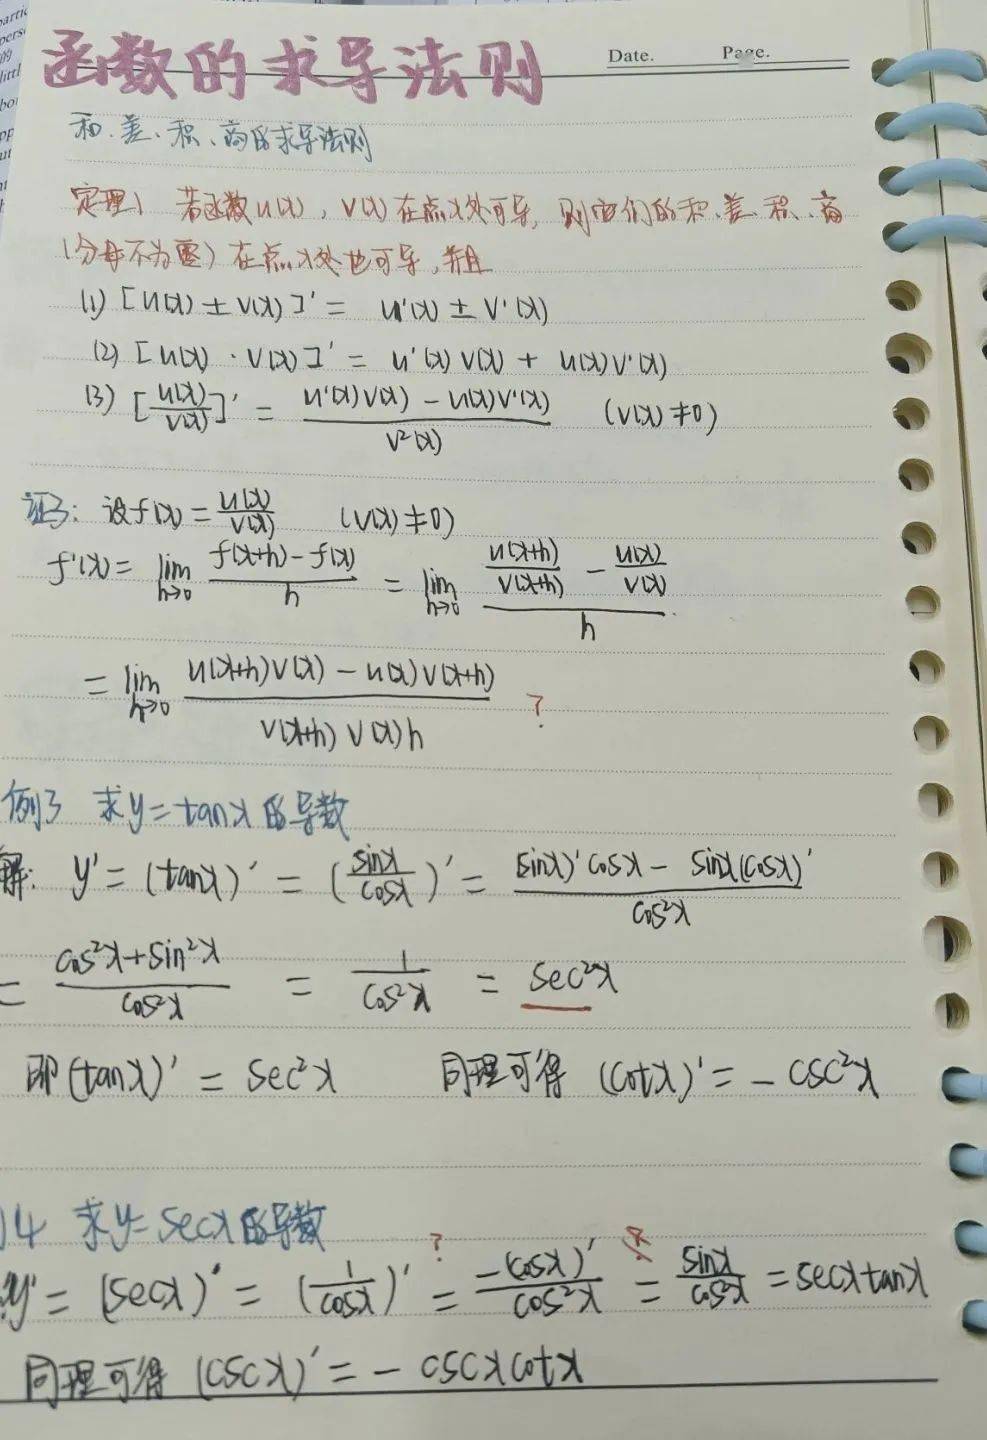 函数的求导法则
Date. Page.
和、差、积、商的求导法则
定理1 若函数u(x),v(x)在点x处可导,则它们的和、差、积、商
(分母不为零)在点x处也可导,并且
(1) [u(x) ± v(x)]' = u'(x) ± v'(x)
(2) [u(x) · v(x)]' = u'(x)v(x) + u(x)v'(x)
(3) [u(x)/v(x)]' = (u'(x)v(x) − u(x)v'(x))/v²(x) (v(x)≠0)
证3: 设f(x) = u(x)/v(x) (v(x)≠0)
f'(x) = lim h→0 (f(x+h) − f(x))/h = lim h→0 (u(x+h)/v(x+h) − u(x)/v(x))/h
= lim h→0 (u(x+h)v(x) − u(x)v(x+h))/(v(x+h)v(x)h) ?
例3 求y=tanx的导数
解: y' = (tanx)' = (sinx/cosx)' = ((sinx)'cosx − sinx(cosx)')/cos²x
= (cos²x+sin²x)/cos²x = 1/cos²x = sec²x
即(tanx)' = sec²x 同理可得 (cotx)' = − csc²x
4 求y=secx的导数
? 
y' = (secx)' = (1/cosx)' = −(cosx)'/cos²x = sinx/cos²x = secxtanx
同理可得 (cscx)' = − cscxcotx